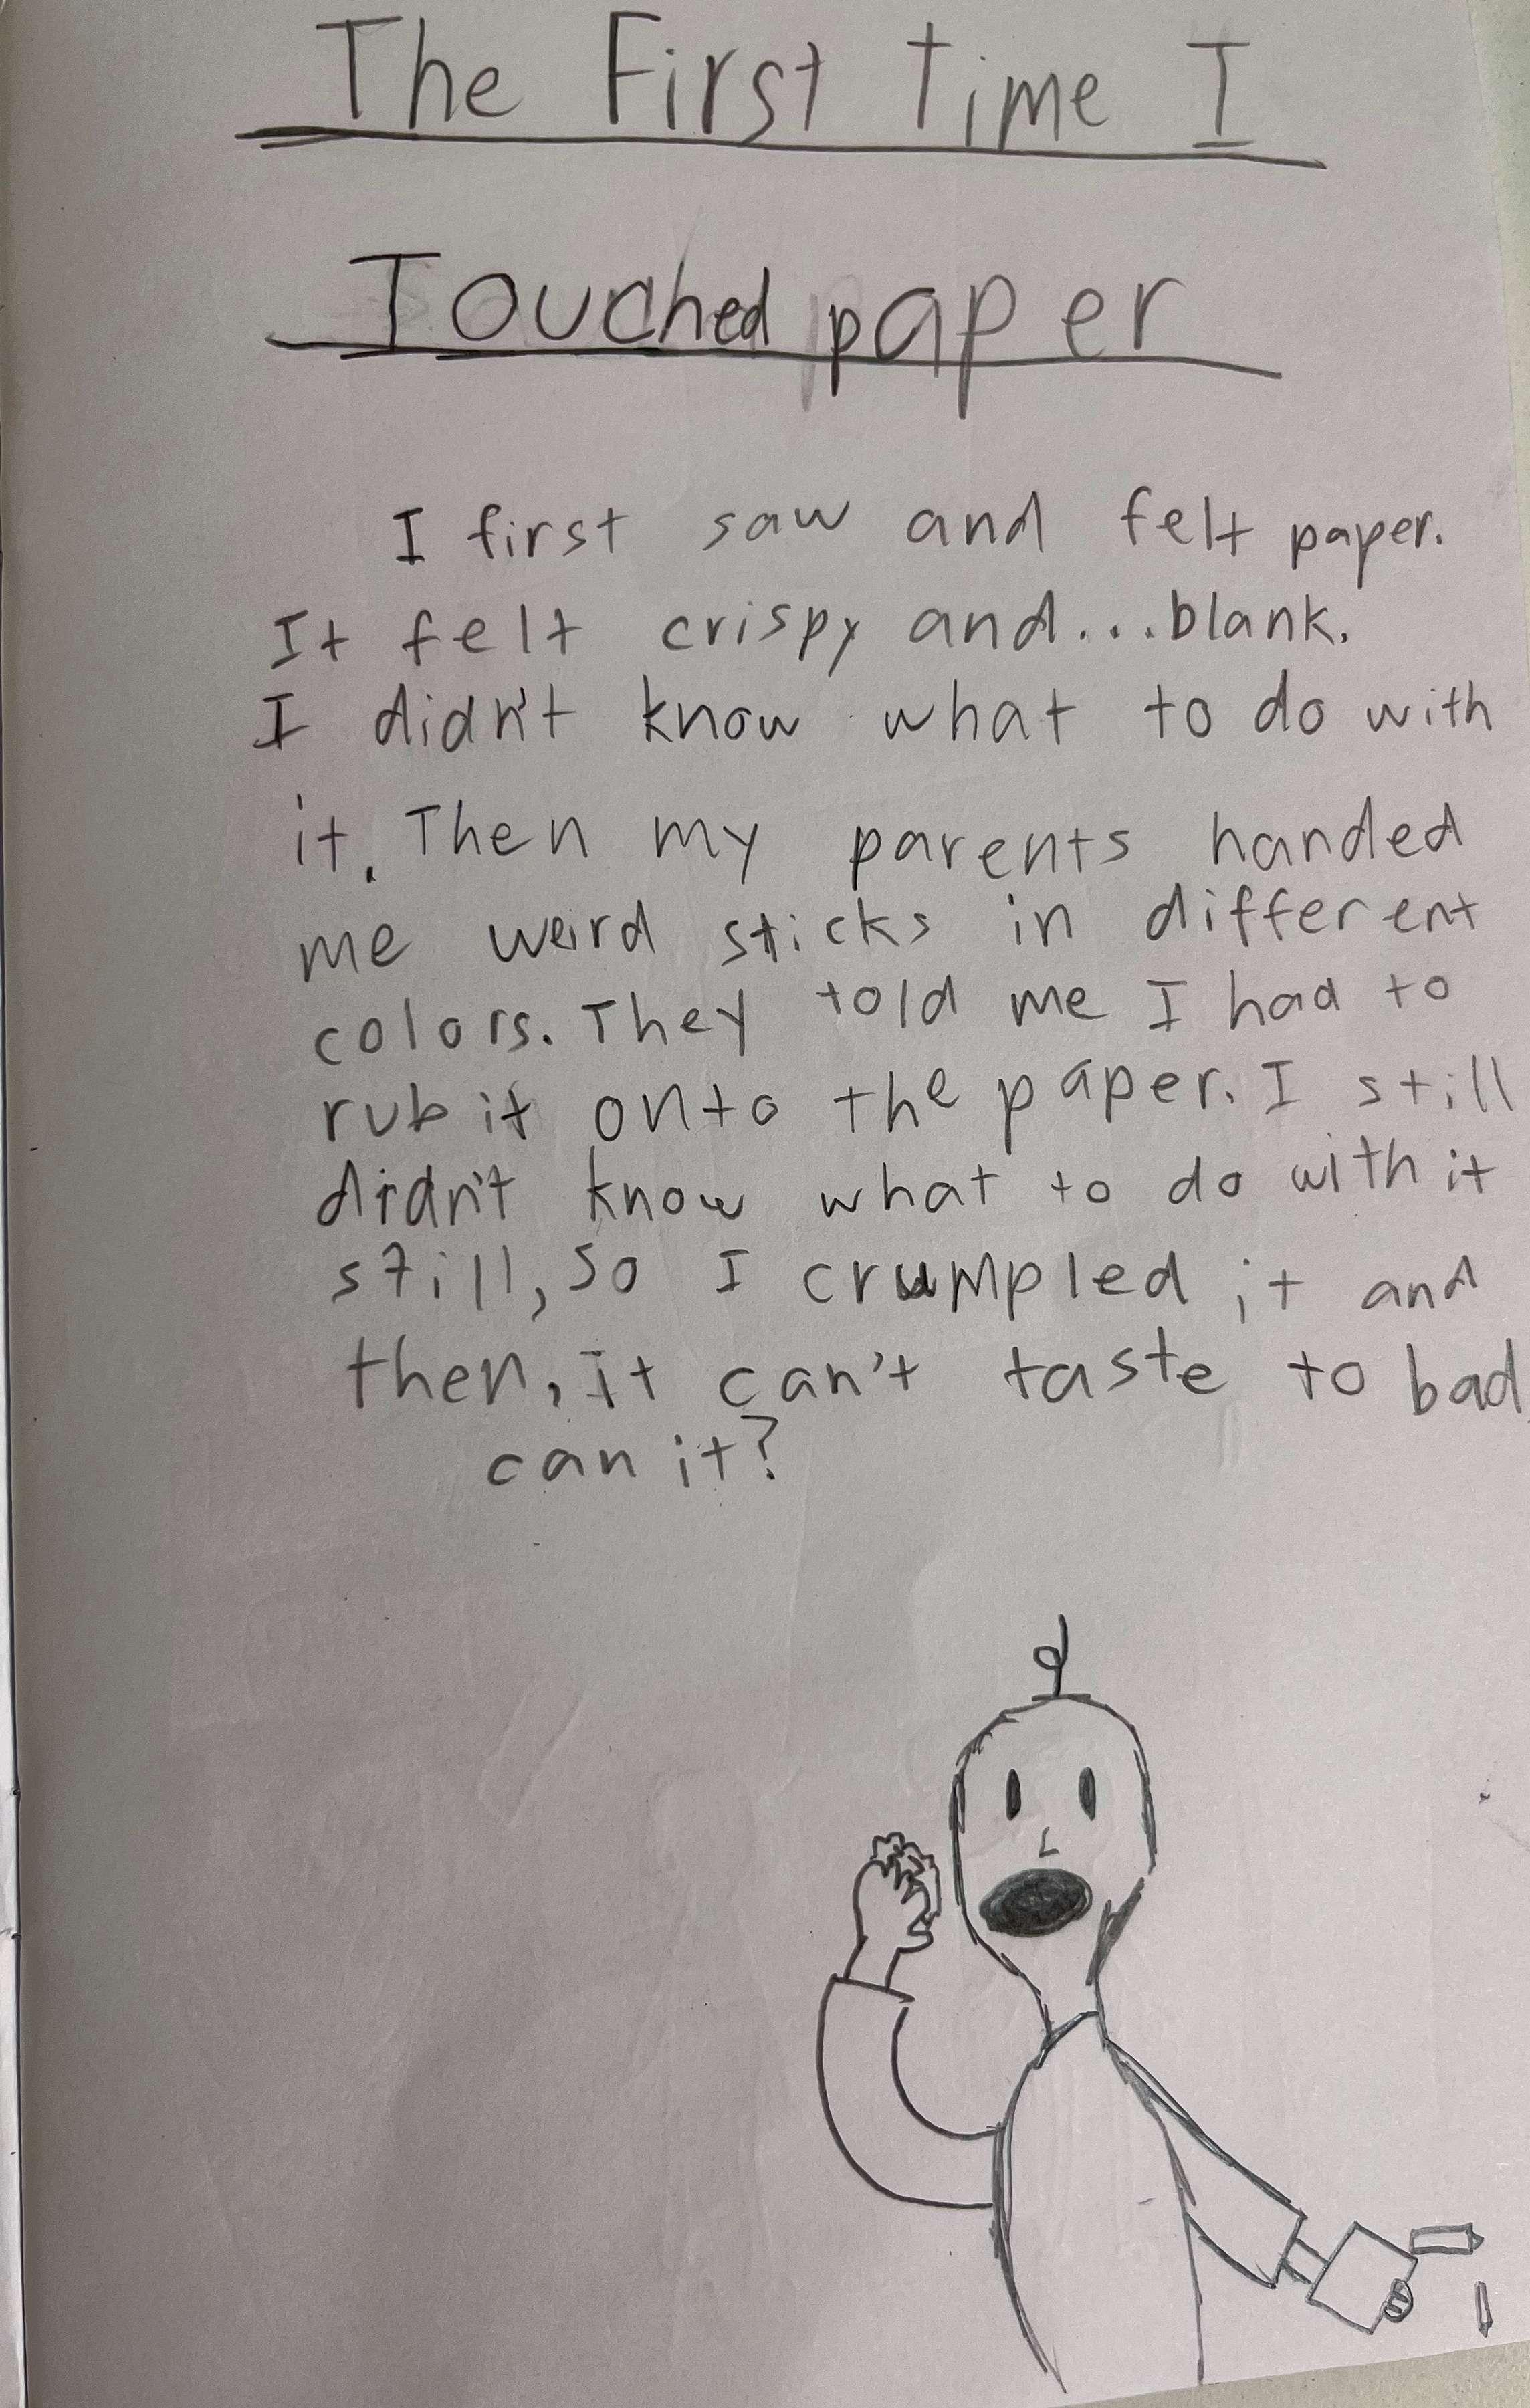 The First Time I
Touched paper
I first saw and felt paper.
It felt crispy and...blank.
I didn't know what to do with
it. Then my parents handed
me weird sticks in different
colors. They told me I had to
rub it onto the paper. I still
didn't know what to do with it
still, so I crumpled it and
then, it can't taste to bad
can it?